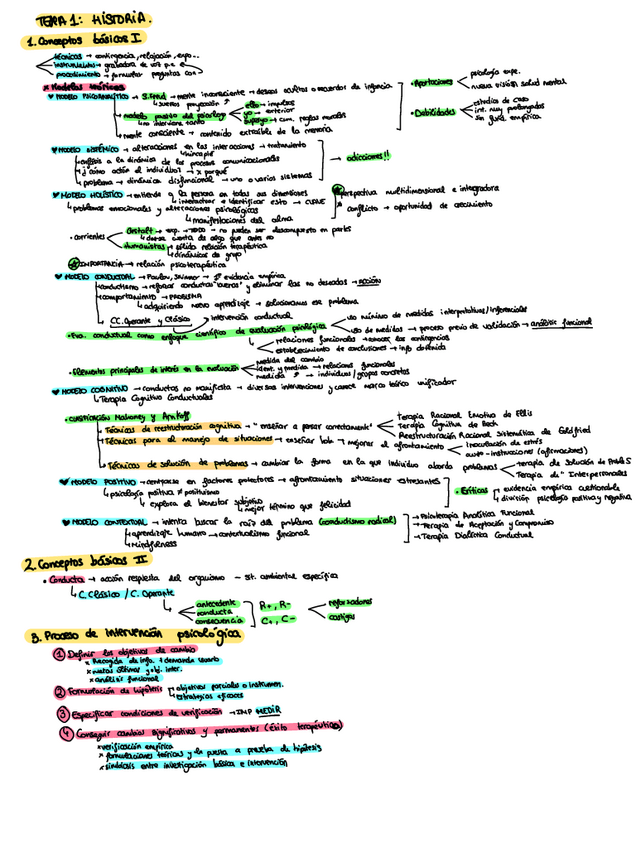 TEMA 1: HISTORIA.
1. Conceptos básicos I
técnicas → contingencia, relajación, expo...
instrumentos → grabadora de voz p.e
procedimiento → formular preguntas con
* Modelos teóricos
♥ MODELO PSICODINÁMICO → S. Freud → mente inconsciente → deseos ocultos o recuerdos de infancia
↳ sueños proyección
modelo puesto del psicólogo
↳ no interviene tanto
ello → impulsos
yo → exterior
superyo → cum. reglas morales
mente consciente → contenido extraíble de la memoria
• Aportaciones
psicología expe.
nueva visión salud mental
• Debilidades
estudios de caso
int. muy prolongados
sin fund. empírica
♥ MODELO SISTÉMICO → alteraciones en las interacciones → tratamiento
↳ hincapié
énfasis a la dinámica de los procesos comunicacionales
¿cómo actúa el individuo? → x porqué
problema → dinámica disfuncional → uno o varios sistemas
→ adicciones!!
♥ MODELO HOLÍSTICO → entiende a la persona en todas sus dimensiones
↳ interactuar e identificar esto → CLAVE
↳ problemas emocionales y alteraciones psicológicas
↳ manifestaciones del alma
perspectiva multidimensional e integradora
conflicto → oportunidad de crecimiento
• corrientes
Gestalt → exp. → TODO → no pueden ser descompuesto en partes
↳ darse cuenta de algo que antes no
Humanistas → sólida relación terapéutica
↳ dinámicas de grupo
IMPORTANCIA → relación psicoterapéutica
♥ MODELO CONDUCTUAL → Paulov, Skinner → 1ª evidencia empírica
conductismo → reforzar conductas "buenas" y eliminar las no deseadas → ACCIÓN
comportamiento → PROBLEMA
↳ adquiriendo nuevo aprendizaje → solucionamos ese problema
CC. Operante y Clásico
intervención conductual
• Eva. conductual como enfoque científico de evaluación psicológica
uso mínimo de medidas interpretativas/inferenciales
uso de medidas → proceso previo de validación → análisis funcional
relaciones funcionales → conocer las contingencias
establecimiento de conclusiones → info obtenida
• Elementos principales de interés en la evaluación
medida del cambio
ident. y medida → relaciones funcionales
medida → individuos/grupos concretos
♥ MODELO COGNITIVO → conductas no manifiesta → diversas intervenciones y carece marco teórico unificador
↳ Terapia Cognitivo Conductuales
• CLASIFICACIÓN Mahoney y Arnkoff
Técnicas de reestructuración cognitiva → "enseñar a pensar correctamente"
Terapia Racional Emotiva de Ellis
Terapia Cognitiva de Beck
Reestructuración Racional Sistemática de Goldfried
Técnicas para el manejo de situaciones → enseñar hab → mejorar el afrontamiento
inoculación de estrés
auto-instrucciones (afirmaciones)
Técnicas de solución de problemas → cambiar la forma en la que individuo aborda problemas
terapia de Solución de Probls
Terapia de " Interpersonales
♥ MODELO POSITIVO → centrarse en factores protectores → afrontamiento situaciones estresantes
↳ psicología positiva ≠ positivismo
↳ explora el bienestar subjetivo
↳ mejor término que felicidad
• Críticas
evidencia empírica cuestionable
división psicología positiva y negativa
♥ MODELO CONTEXTUAL → intenta buscar la raíz del problema (conductismo radical)
aprendizaje humano → contextualismo funcional
Mindfulness
→ Psicoterapia Analítica Funcional
→ Terapia de Aceptación y Compromiso
→ Terapia Dialéctica Conductual
2. Conceptos básicos II
• Conducta → acción respuesta del organismo → st. ambiental específica
↳ C. Clásico / C. Operante
antecedente
conducta
consecuencia
R+, R-
C+, C-
reforzadores
castigos
3. Proceso de intervención psicológica
① Definir los objetivos de cambio
* Recogida de info. + demanda usuario
* metas últimas y obj. inter.
* análisis funcional
② Formulación de hipótesis
objetivos parciales o instrumen.
estrategias eficaces
③ Especificar condiciones de verificación → IMP MEDIR
④ Conseguir cambios significativos y permanentes (éxito terapéutico)
* verificación empírica
* formulaciones teóricas y la puesta a prueba de hipótesis
* simbiosis entre investigación básica e intervención